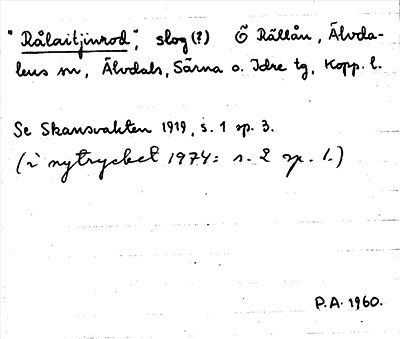 "Rålaitjinrod", slog(?) Ö Rällån, Älvda-
lens sn, Älvdals, Särna o. Idre tg, Kopp. l.
Se Skansvakten 1919, s. 1 sp. 3.
(i nytrycket 1974: s. 2 sp. 1.)
P.A. 1960.